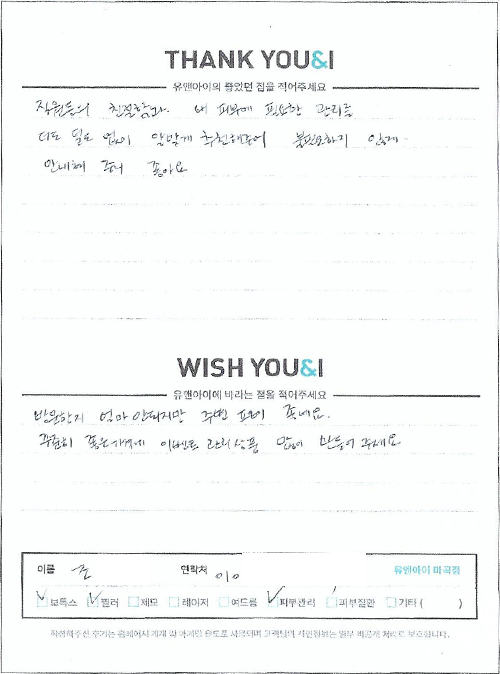 THANK YOU&I
유앤아이의 좋았던 점을 적어주세요
직원들의 친절함과 내 피부에 필요한 관리를
더도 덜도 없이 알맞게 추천해주어 불필요하지 않게
안내해 주니 좋아요
WISH YOU&I
유앤아이에 바라는 점을 적어주세요
방문한지 얼마 안되지만 주변 평이 좋네요.
꾸준히 좋은 가격에 이벤트 관리상품 많이 만들어 주세요
이름 조 연락처 010 유앤아이 마곡점
보톡스 필러 제모 레이저 여드름 피부관리 피부질환 기타 ( )
작성해주신 후기는 홈페이지 게재 및 마케팅 용도로 사용되며 고객님의 개인정보는 일부 비공개 처리로 보호됩니다.